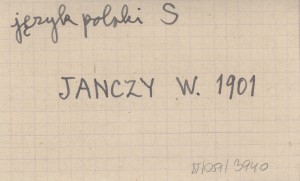 język polski S
JANCZY W. 1901
3940